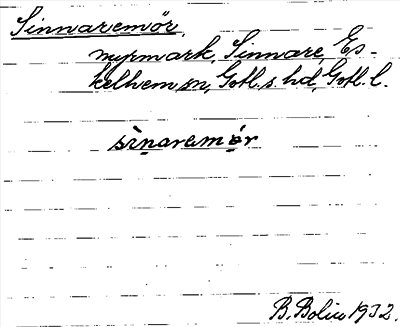 Sinnaremör,
myrmark, Sinnare, Es-
kelhem sn, Gotl. s. hd, Gotl. l.
sìnaremór
B. Bolin 1932.